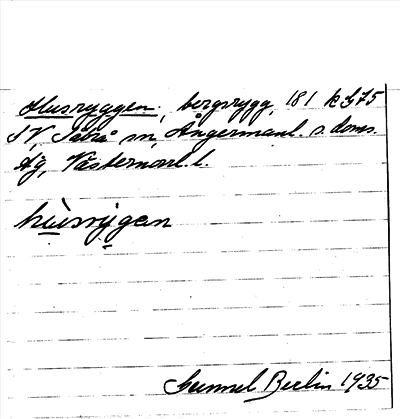 Husryggen, bergsrygg, 181 k 3J75
SV, Säbrå sn, Ångermanl. s. doms.
dg, Västernorrl. l.
hùsrýgen
Gunnel Berlin 1935